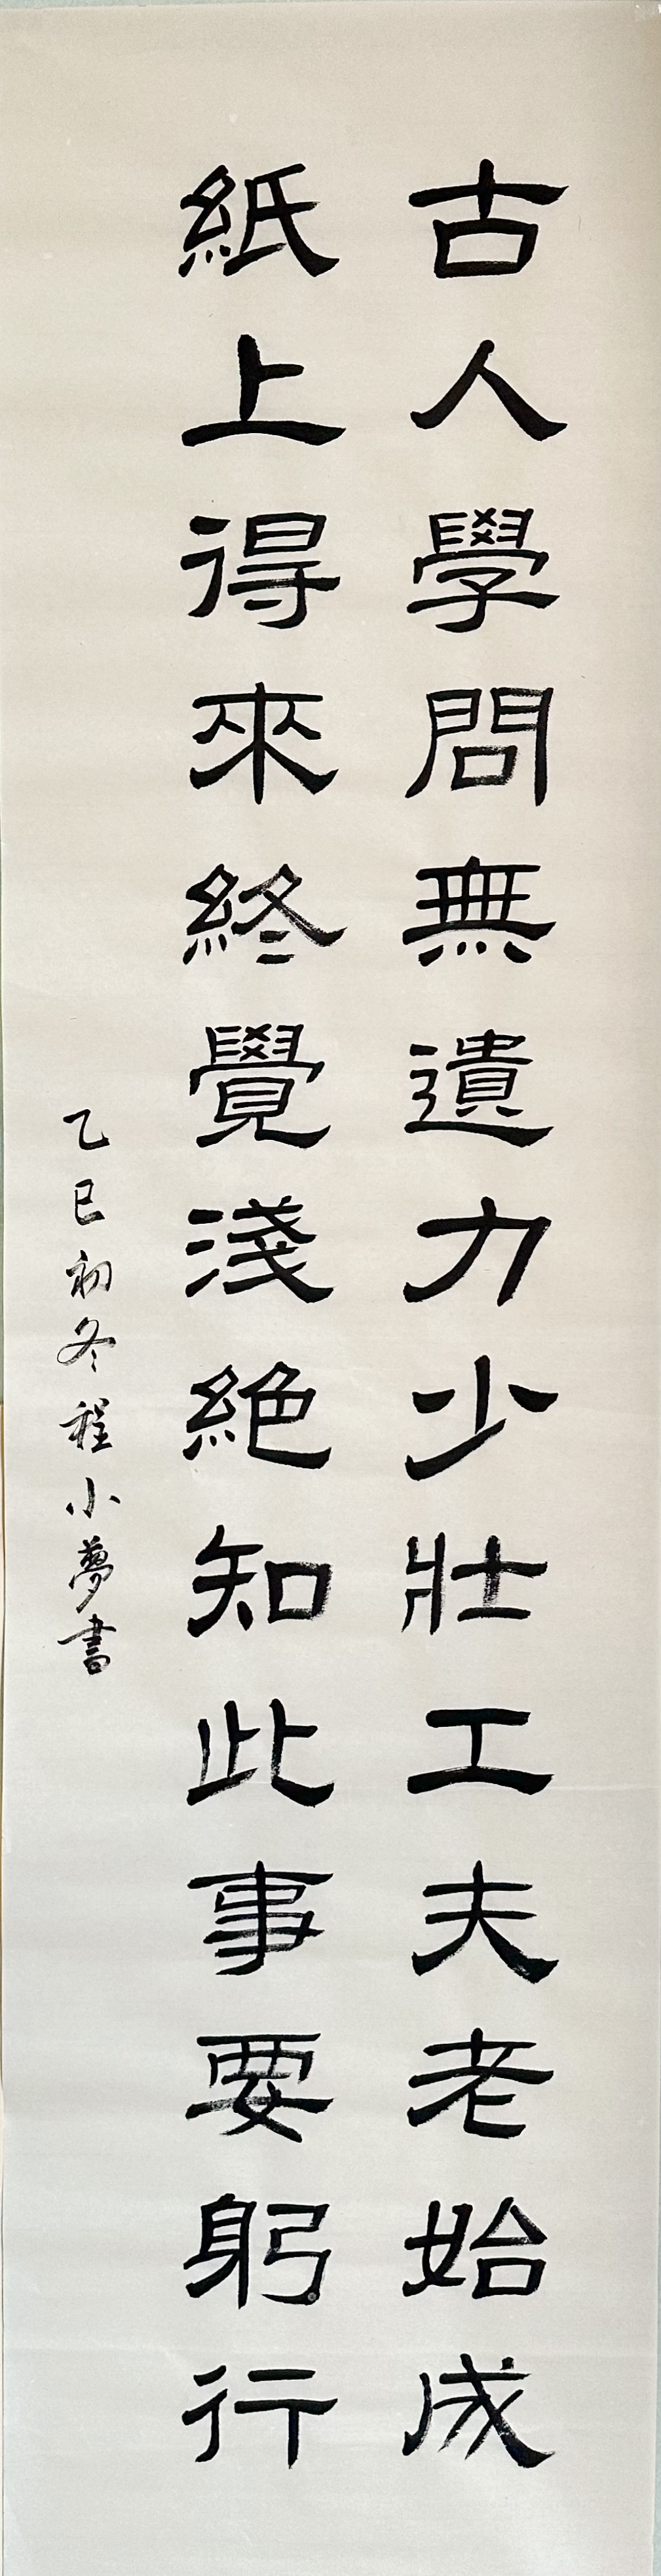 古人學問無遺力少壯工夫老始成
紙上得來終覺淺絕知此事要躬行
乙巳初冬程小夢書